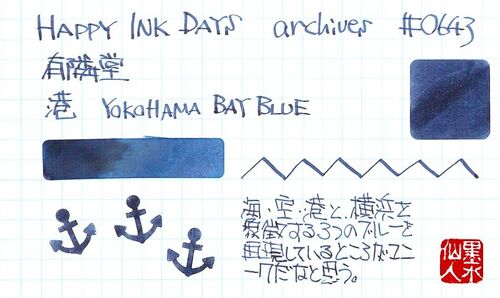 HAPPY INK DAYS archives #0643
有隣堂
港 YOKOHAMA BAY BLUE
海・空・港と、横浜を
象徴する3つのブルーを
再現しているところがユニ
ークだなと思う。
墨水
仙人